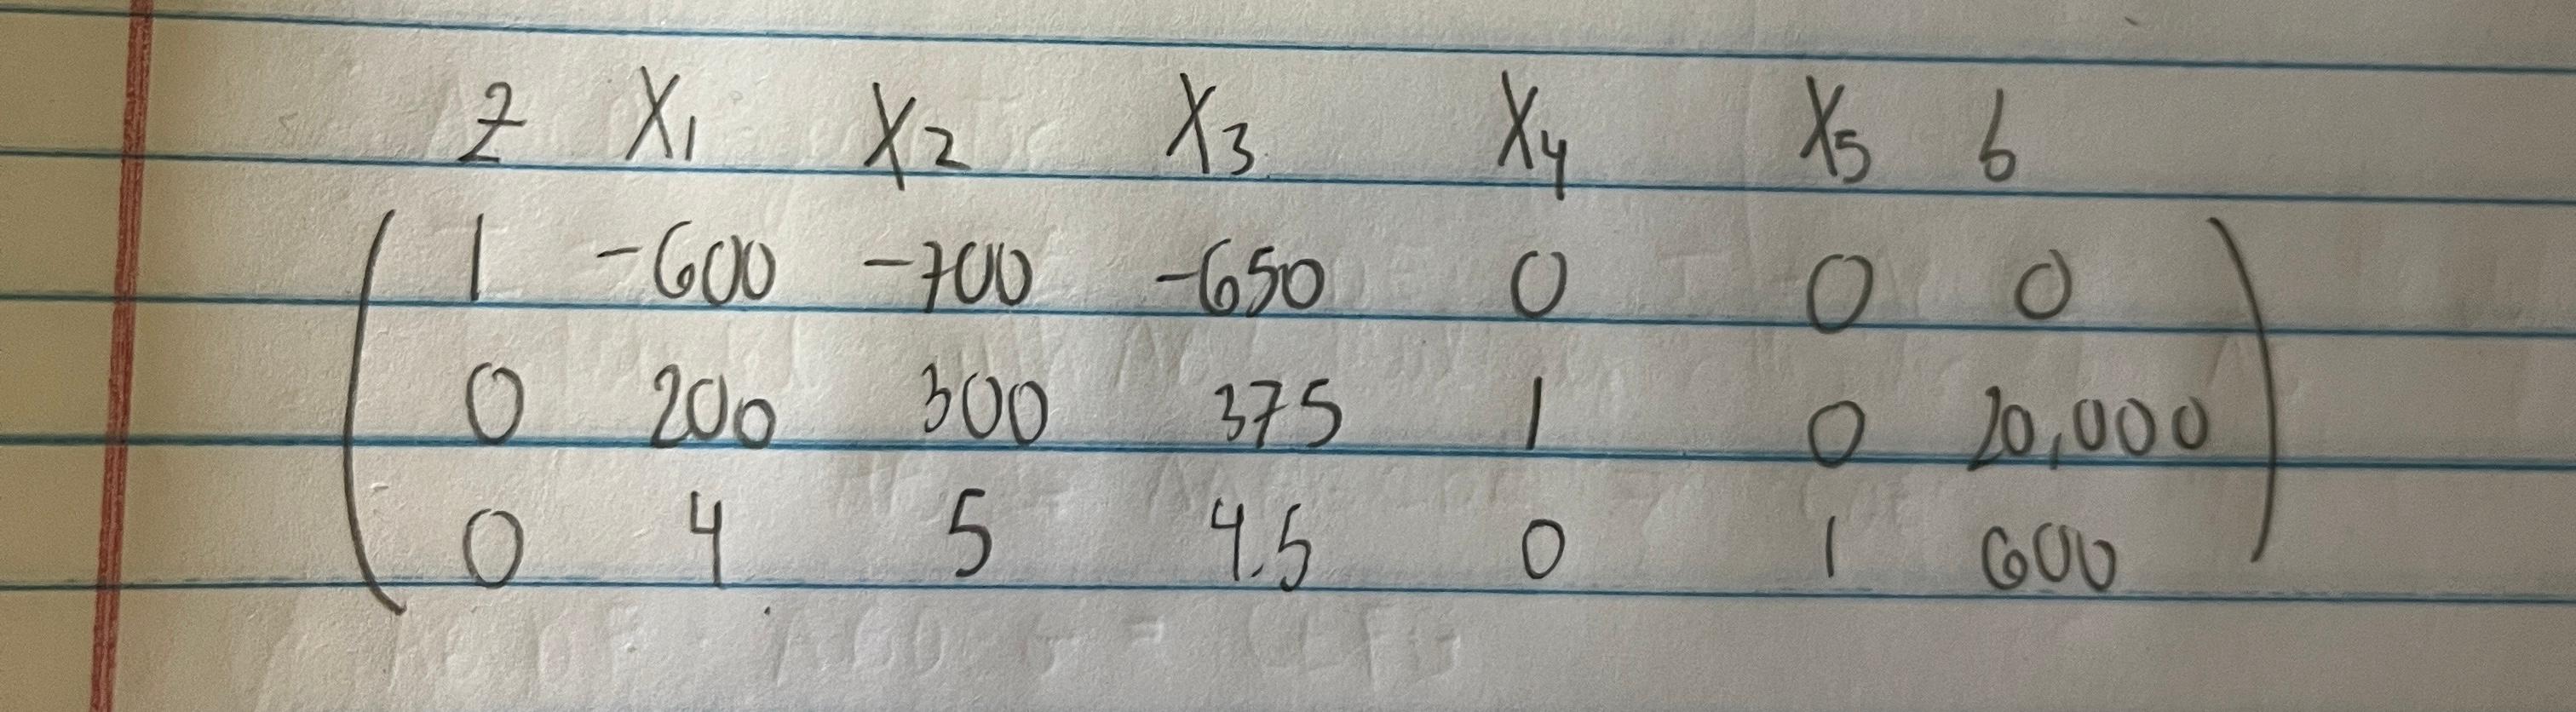 z X1 X2 X3 X4 X5 b
1 -600 -700 -650 0 0 0
0 200 300 375 1 0 20,000
0 4 5 4.5 0 1 600